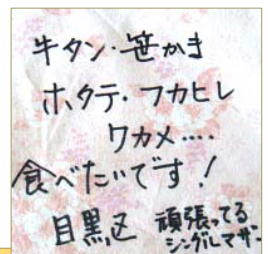 牛タン・笹かま
ホタテ・フカヒレ
ワカメ‥‥
食べたいです!
目黒区 頑張ってる
シングルマザー